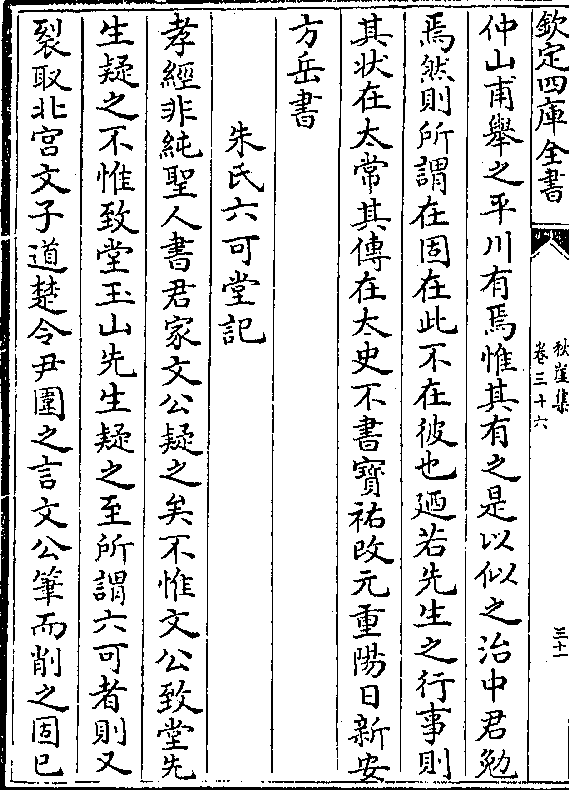 欽定四庫全書
秋崖集
卷三十六
三十一
仲山甫舉之平川有焉惟其有之是以似之治中君勉
焉然則所謂在固在此不在彼也廼若先生之行事則
其狀在太常其傳在太史不書寳祐改元重陽日新安
方岳書
朱氏六可堂記
孝經非純聖人書君家文公疑之矣不惟文公致堂先
生疑之不惟致堂玉山先生疑之至所謂六可者則又
裂取北宫文子道楚令尹圍之言文公筆而削之固已